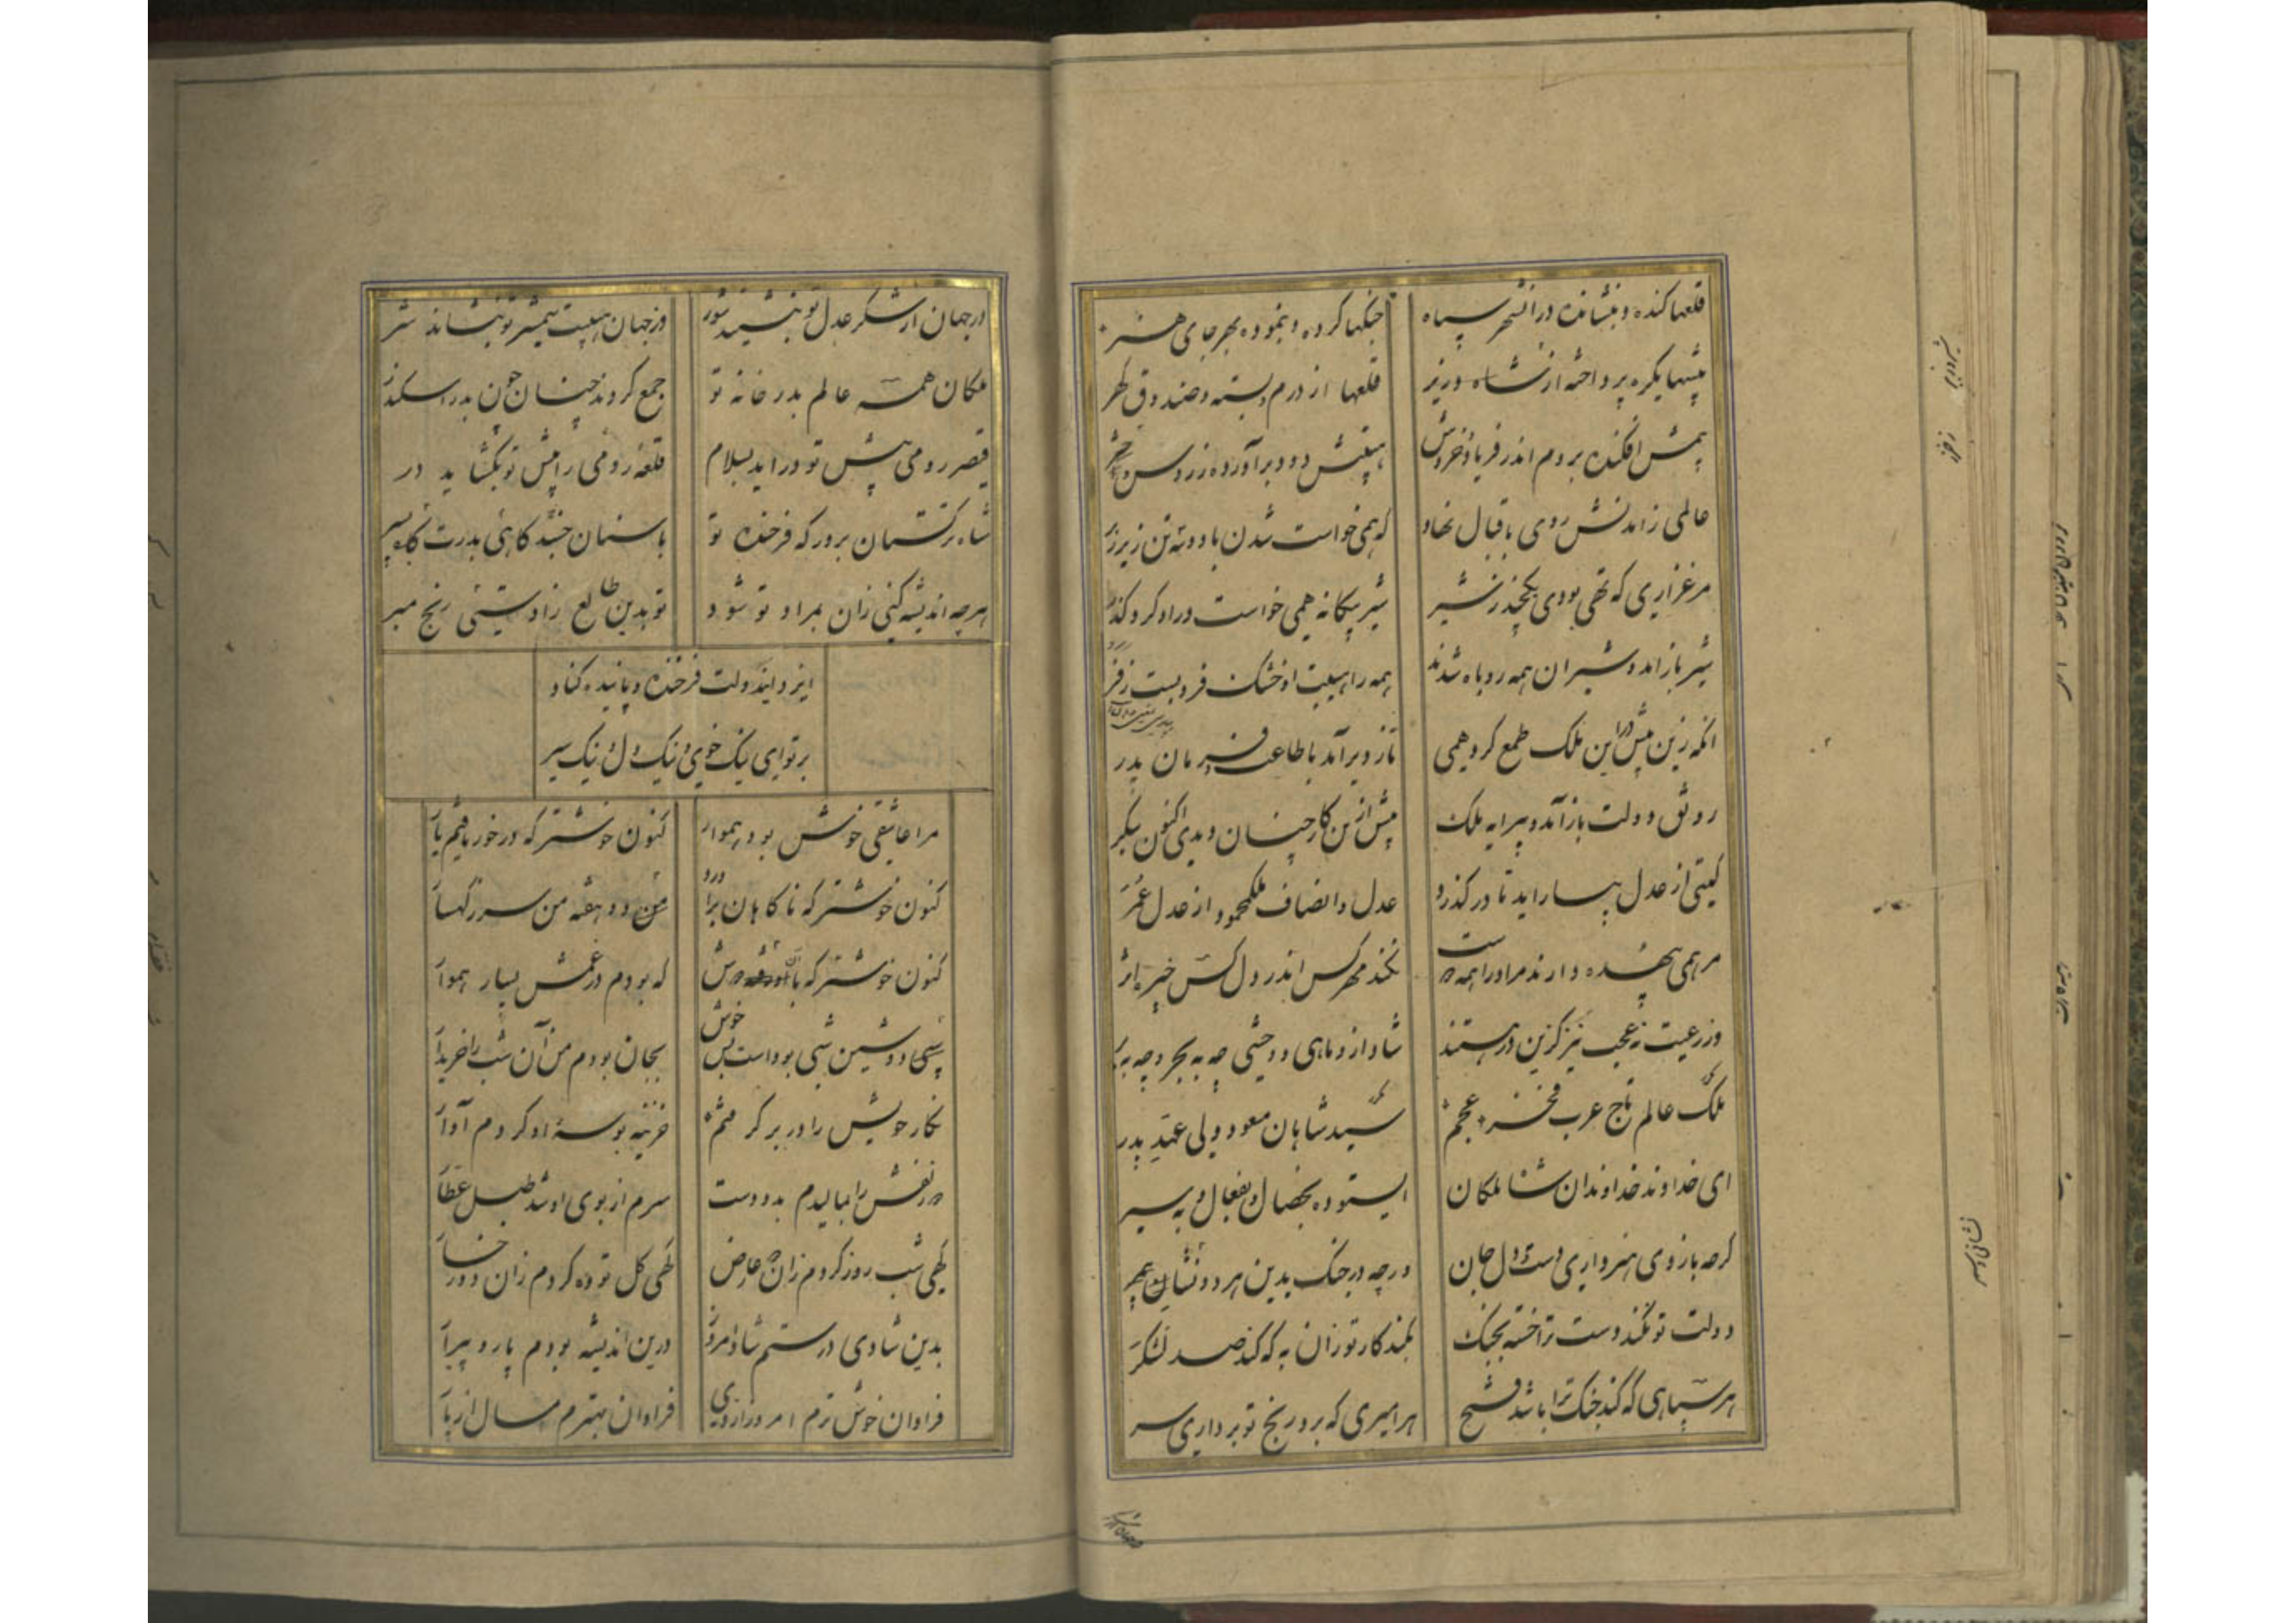 قلعها کنده و بنشانده در انشهر سپاه
جنکها کرده و بنموده بهر جای هنر
پیشها یکره پرداخته از شاه وزیر
قلعها از درم و بسته و صندوق کهر
پیش افکنده بروم اندر فریاد و خروش
هیبتش دود برآورده ز روس و ز خزر
عالمی زامدنش روی باقبال نهاد
که همی خواست شدن با دو شه تن زیر زبر
مرغزاری که تهی بودی یکچند ز شیر
شیر بیکانه همی خواست در او کرد کذر
شیر بازامد و شیران همه روباه شدند
همه را هیبت او خشک فرو بست زفر
انکه زین پیش در این ملک طمع کرد همی
تازد برآمد با طاعت و فرمان پدر
رونق دولت بازآمد و پیرایه ملک
پیش ازین کار چنان دیدی اکنون بنکر
کیتی از عدل بیاراید تا در کذرد
عدل و انصاف ملکمحمود از عدل عمر
مرهمی بیهده دارند مر او را همه دوست
نکند مهر کس اندر دل کس خیره اثر
وز رعیت نه عجب نیز کزین درهستند
شاد ازو ماهی و وحشی چه به بحر و چه به بر
ملک عالم تاج عرب و فخر عجم
سید شاهان مسعود ولی عهد پدر
ای خداوند خداوندان شاه ملکان
ای ستوده بخصال و بفعال و به سیر
کرچه بازوی هنر داری و دست و دل جان
ورچه در جنک بدین هر دو نشان
دولت تو نکند دست ترا خسته بجنک
بکند کار تو زان به که کند صد لشکر
هر سپاهی که کند جنک ترا باشد فتح
هر امیری که برو رنج تو برداری سر
در جهان از شکر عدل تو بنشیند شور
وز جهان هیبت شمشیر تو بنشاند شر
ملکان همه عالم بدر خانه تو
جمع کردند چنان چون بدر اسکندر
قیصر رومی پیش تو دراید بسلام
قلعه رومی را پیش تو بکشاید در
شاه ترکستان بر درکه فرخنده تو
باسنان جنبد کاهی بدرت کاه سپر
هرچه اندیشه کنی زان بمراد تو شود
تو بدین طالع زادستی رنج مبر
ایزد ایندولت فرخنده و پاینده کناد
بر تو ای نیک خوی و نیک دل و نیک سیر
مرا عاشقی خوش بود هموار
کنون خوشتر که در خور یافتم یار
کنون خوشتر که ناکاهان برآورد
من دو هفته من سر ز کهسار
کنون خوشتر که با او دوش
که بودم در غمش بسیار هموار
پسی دوشین شبی بوداست بس خوش
بجان بودم من آن شب را خریدار
نکار خویش را در بر کرفتم
خزینه بوسه او کردم آوار
دو زلفش را بمالیدم بدو دست
سرم از بوی او شد طبل عطار
کهی شب روز کردم زان دو عارض
کهی کل توده کردم زان دو رخسار
بدین شادی درستم شاد امروز
درین اندیشه بودم پار و پیرار
فراوان خوش ترم امروز از دی
فراوان بهترم امسال از پار